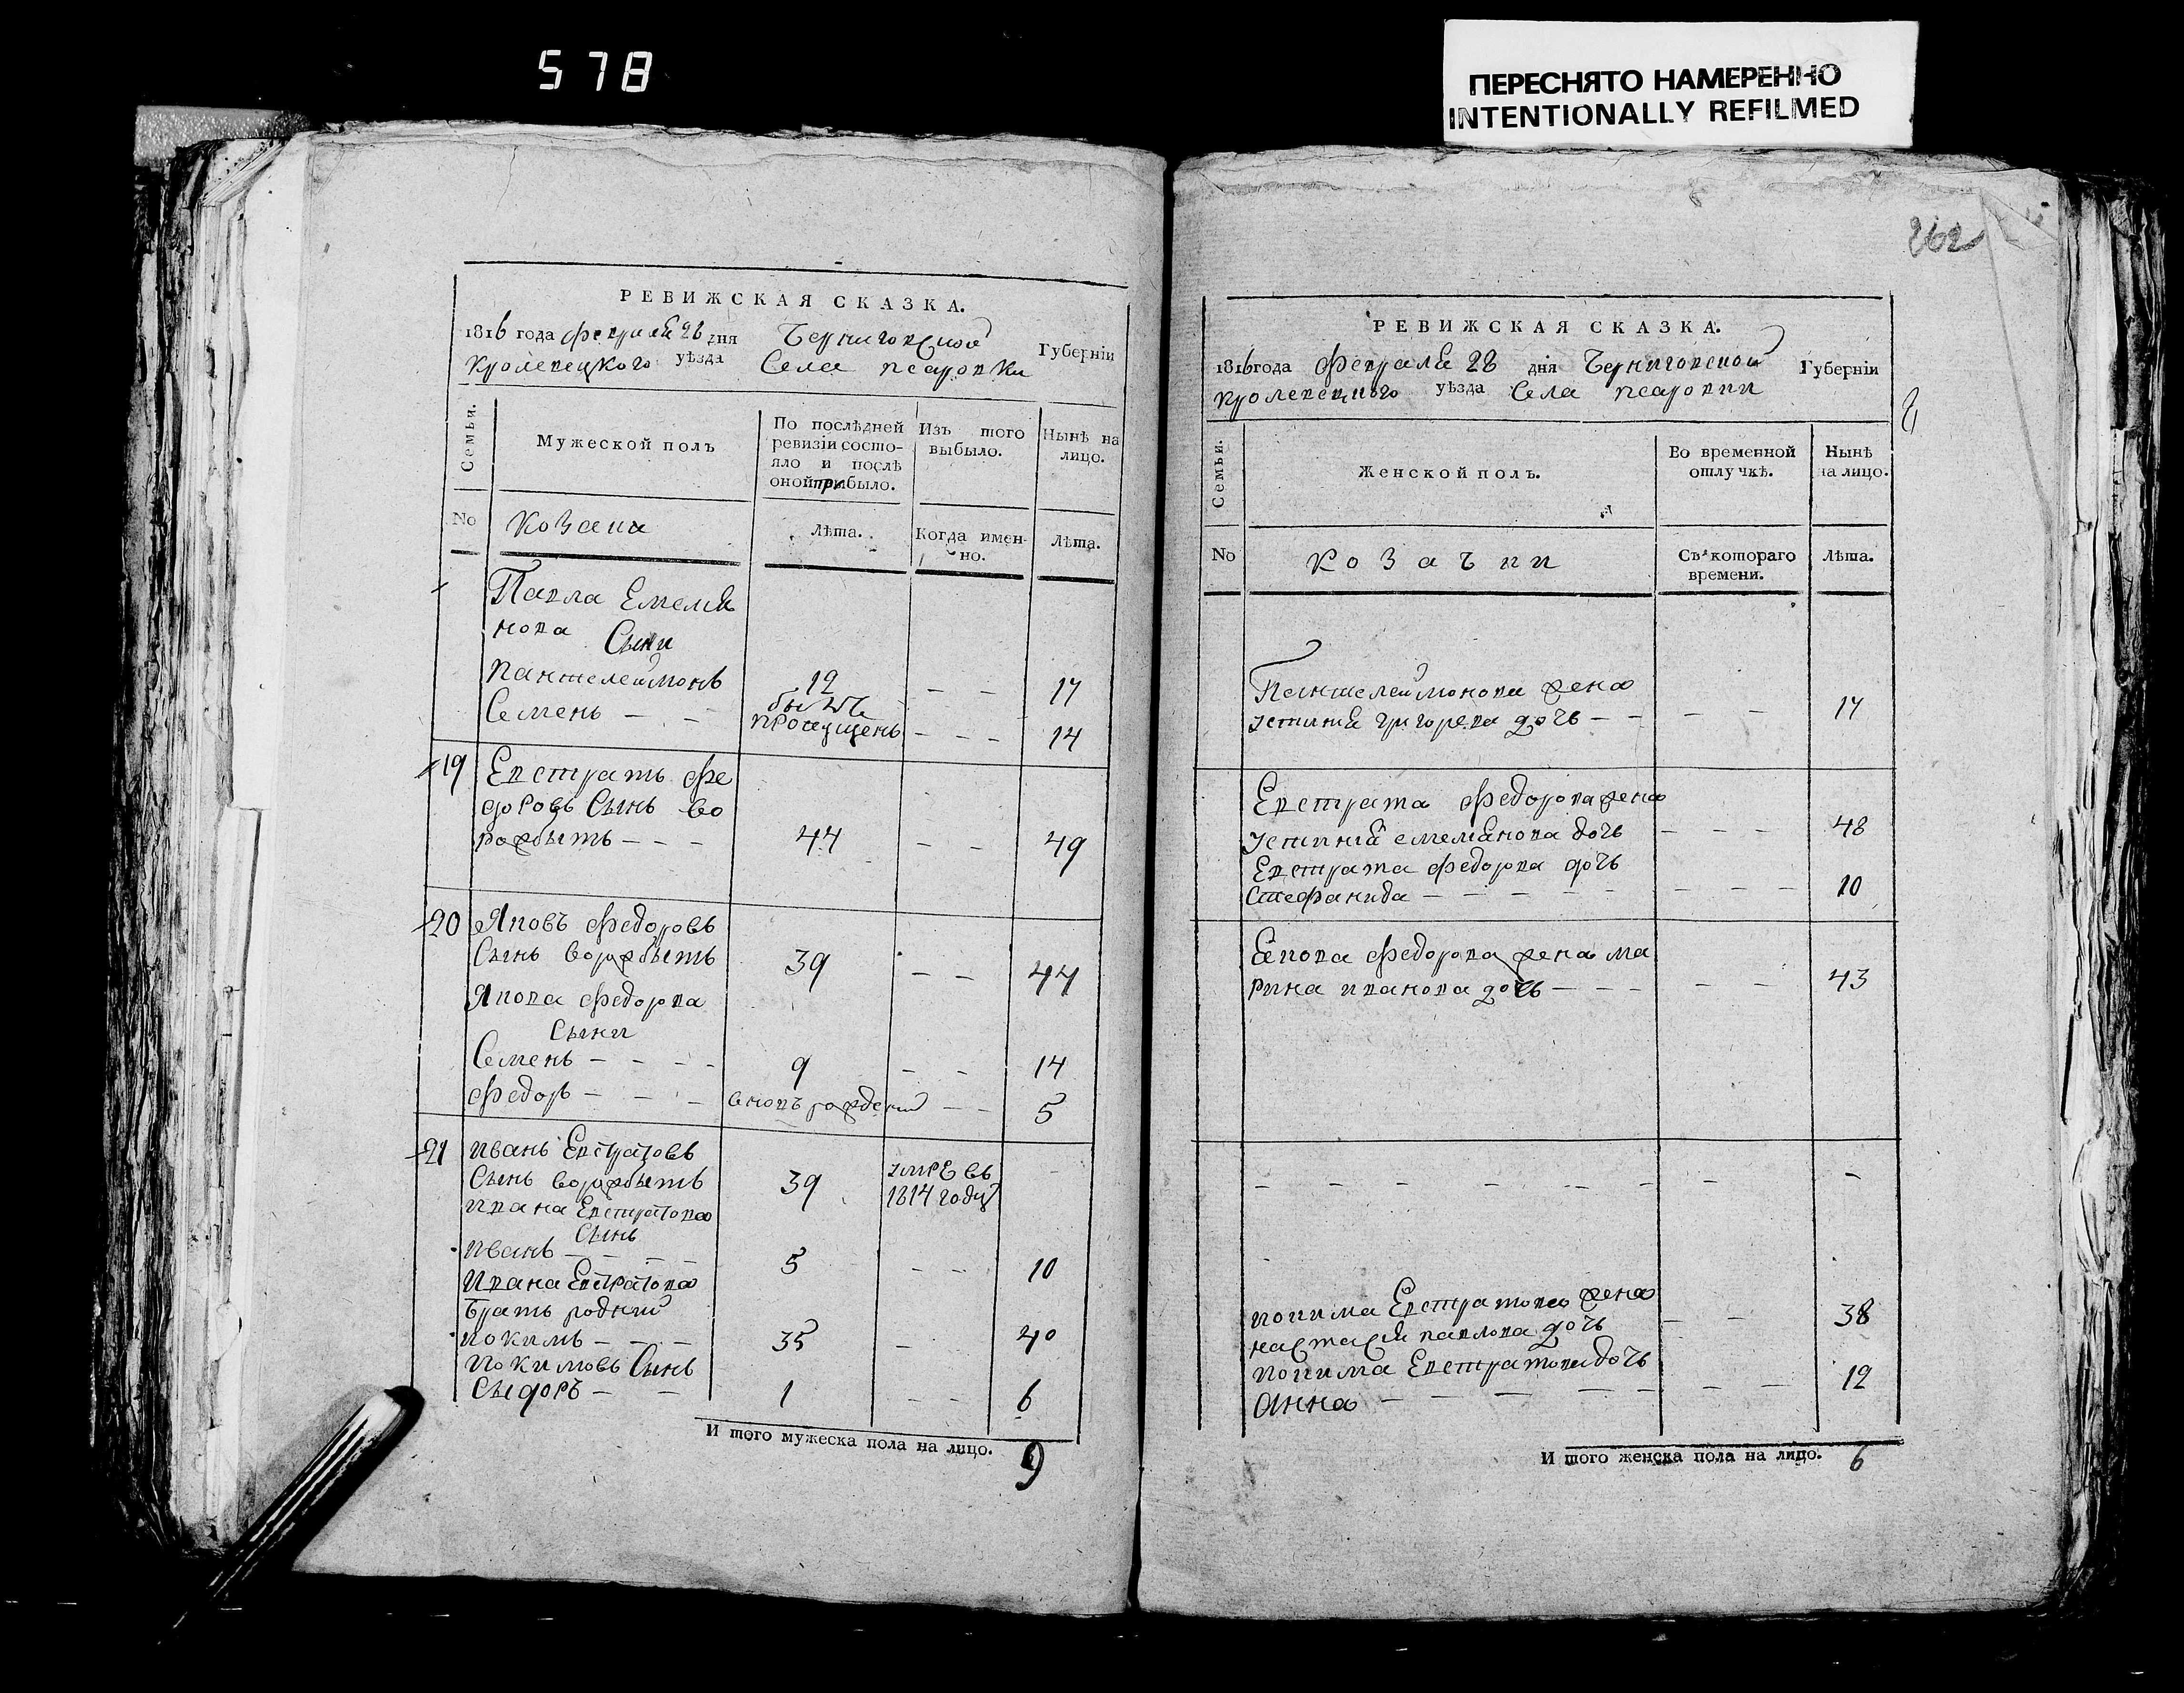 578
ПЕРЕСНЯТО НАМЕРЕННО
INTENTIONALLY REFILMED
262
РЕВИЖСКАЯ СКАЗКА.
1816 года февраля 28 дня Черниговской Губерніи
Кролевецкого уѣзда Села псаровки
Семьи.
Мужеской полъ
По послѣдней
ревизіи состо-
яло и послѣ
оной прибыло.
Изъ того
выбыло.
Нынѣ на
лицо.
No
козаки
Лѣта.
Когда имен-
но.
Лѣта.
Павла Емелія
нова
Сыни
пантелеймонъ 12 — — 17
Семенъ — — бытъ
пропущенъ — — — 14
19 Евстратъ фе
доровъ Сынъ во
рожбытъ — — — 44 — — 49
20 Яковъ федоровъ
Сынъ ворожбытъ 39 — — 44
Якова федорова
Сыни
Семенъ — — — — 9 — — 14
федоръ — — — вновъ рожденій — — 5
21 иванъ Евстратовъ
Сынъ ворожбытъ 39 умре въ
1814 году
ивана Евстратова
Сынъ
иванъ — — — — 5 — — 10
ивана Евстратова
братъ родний
иокимъ — — — 35 — 40
иокимовъ Сынъ
Сыдоръ — — 1 — — 6
И того мужеска пола на лицо. 9
РЕВИЖСКАЯ СКАЗКА.
1816 года февраля 28 дня Черниговской Губерніи
кролевецкого уѣзда Села псаровки
Семьи.
Женской полъ.
Во временной
отлучкѣ.
Нынѣ
на лицо.
No
козачки
Съ котораго
времени.
Лѣта.
Пантелеймонова жена
устинія григорева дочъ — — — — 17
Евстрата федорова жена
устинія емеліянова дочъ — — — 48
Евстрата федорова дочъ
Стефанида — — — — — — — — 10
Якова федорова жена ма
рина иванова дочъ — — — — — 43
— — — — — — — — —
иокима Евстратова жена
настасія павлова дочъ — — 38
иокима Евстратова дочъ
Анна — — — — — — — 12
И того женска пола на лицо. 6